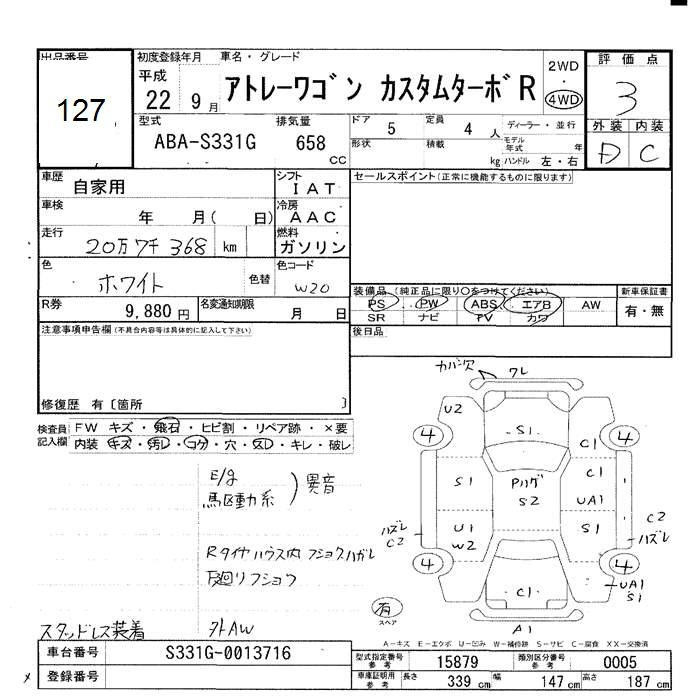 出品番号
127
初度登録年月
平成
22 9月
車名・グレード
アトレーワゴン カスタムターボR
2WD
・
4WD
評価点
3
型式
ABA-S331G
排気量
658
cc
ドア
5
定員
4 人
ディーラー・並行
形状
積載
kg
モデル年式
年
ハンドル 左・右
外装 内装
D C
車歴
自家用
シフト
IAT
セールスポイント(正常に機能するものに限ります)
車検
年 月( 日)
冷房
AAC
走行
20万7千368 km
燃料
ガソリン
色
ホワイト
色替
色コード
W20
装備品(純正品に限り○をつけてください)
新車保証書
PS PW ABS エアB AW
SR ナビ TV カワ
有・無
R券
9,880円
名変通知期限
月 日
後日品
注意事項申告欄(不具合内容等は具体的に記入して下さい)
修復歴 有〔箇所 〕
検査員記入欄
FW キズ・飛石・ヒビ割・リペア跡・×要
内装 キズ・汚レ・コゲ・穴・スレ・キレ・破レ
カバー欠
ワレ
U2
4 4
S1
C1
S1
Pリング
S2
C1
UA1
ハズレ
C2
U1
W2
S1
C2
ハズレ
4 4
C1
UA1
S1
有
スペア
A1
E/g
駆動系
)異音
Rタイヤハウス内フショクハガレ
下廻リフショク
スタッドレス装着
外AW
A-キズ E-エクボ U-凹み W-補修跡 S-サビ C-腐食 XX-交換済
車台番号
S331G-0013716
登録番号
型式指定番号
参考
15879
類別区分番号
参考
0005
車庫証明用
参考
長さ
339 cm
幅
147 cm
高さ
187 cm